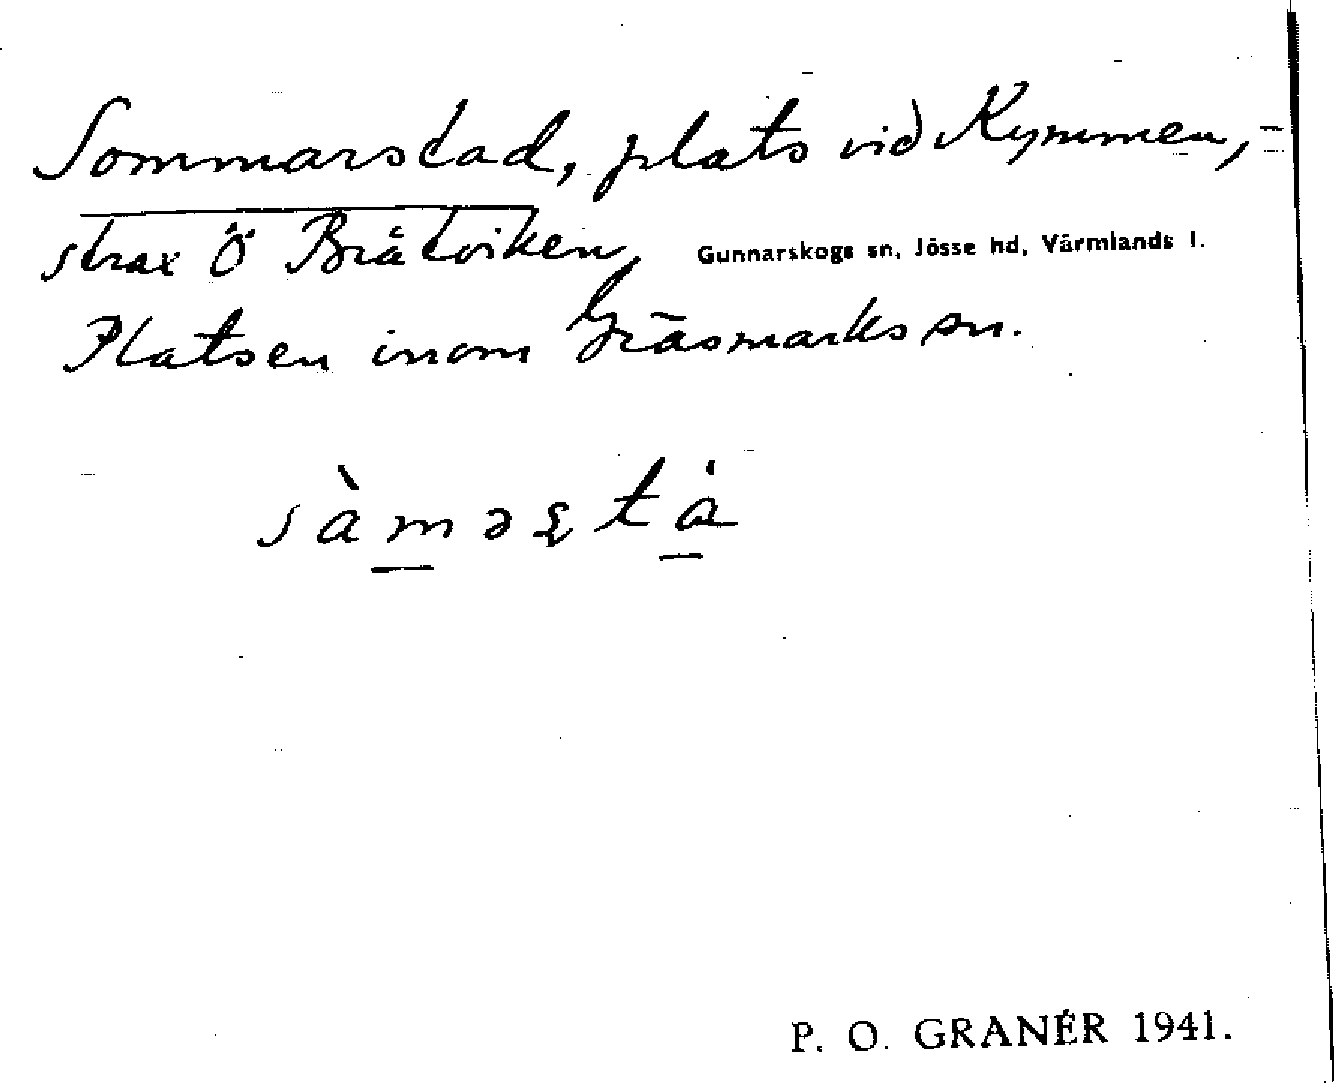 Sommarstad, plats vid Kymmen,
strax Ö Bråtviken, Gunnarskogs sn, Jösse hd, Värmlands l.
Platsen inom Gräsmarks sn.
sàməștȧ
P. O. GRANÉR 1941.